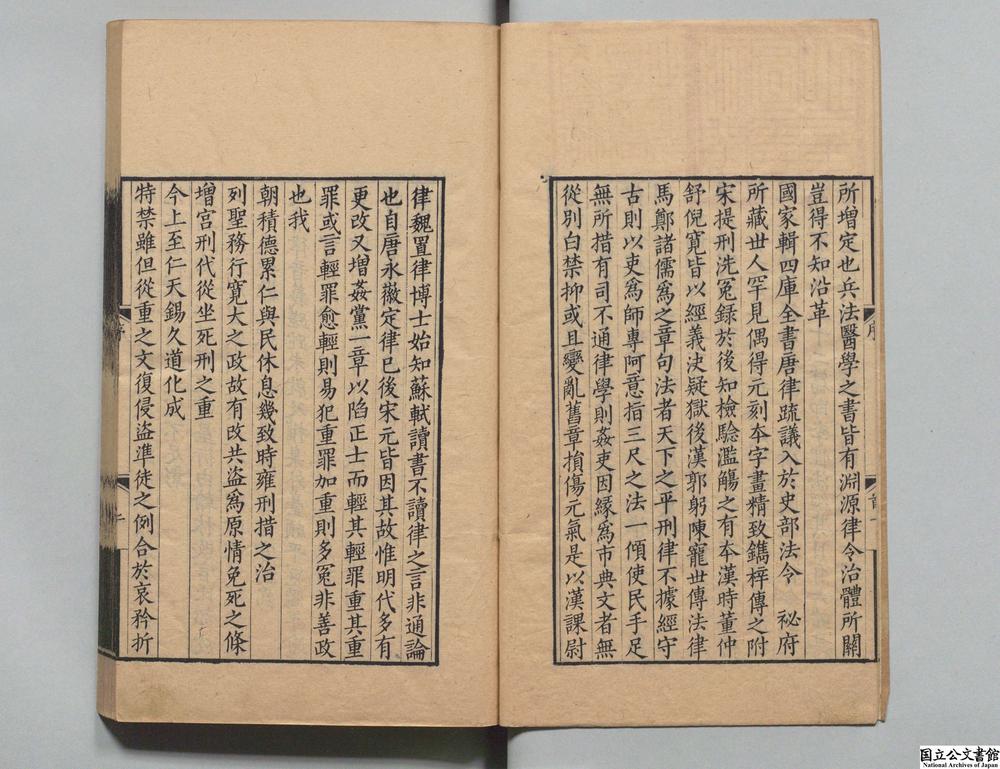 所增定也兵法醫學之書皆有淵源律令治體所關
豈得不知沿革
國家輯四庫全書唐律疏議入於史部法令 祕府
所藏世人罕見偶得元刻本字畫精致鐫梓傳之附
宋提刑洗冤錄於後知檢驗濫觴之有本漢時董仲
舒倪寬皆以經義決疑獄後漢郭躬陳寵世傳法律
馬鄭諸儒為之章句法者天下之平刑律不據經守
古則以吏為師專阿意指三尺之法一傾使民手足
無所措有司不通律學則姦吏因緣為市典文者無
從別白禁抑或且變亂舊章損傷元氣是以漢課尉
律魏置律博士始知蘇軾讀書不讀律之言非通論
也自唐永徽定律已後宋元皆因其故惟明代多有
更改又增姦黨一章以陷正士而輕其輕罪重其重
罪或言輕罪愈輕則易犯重罪加重則多冤非善政
也我
朝積德累仁與民休息幾致時雍刑措之治
列聖務行寬大之政故有改共盜為原情免死之條
增宮刑代從坐死刑之重
今上至仁天錫久道化成
特禁雖但從重之文復侵盜準徒之例合於哀矜折
序
二
国立公文書館
National Archives of Japan